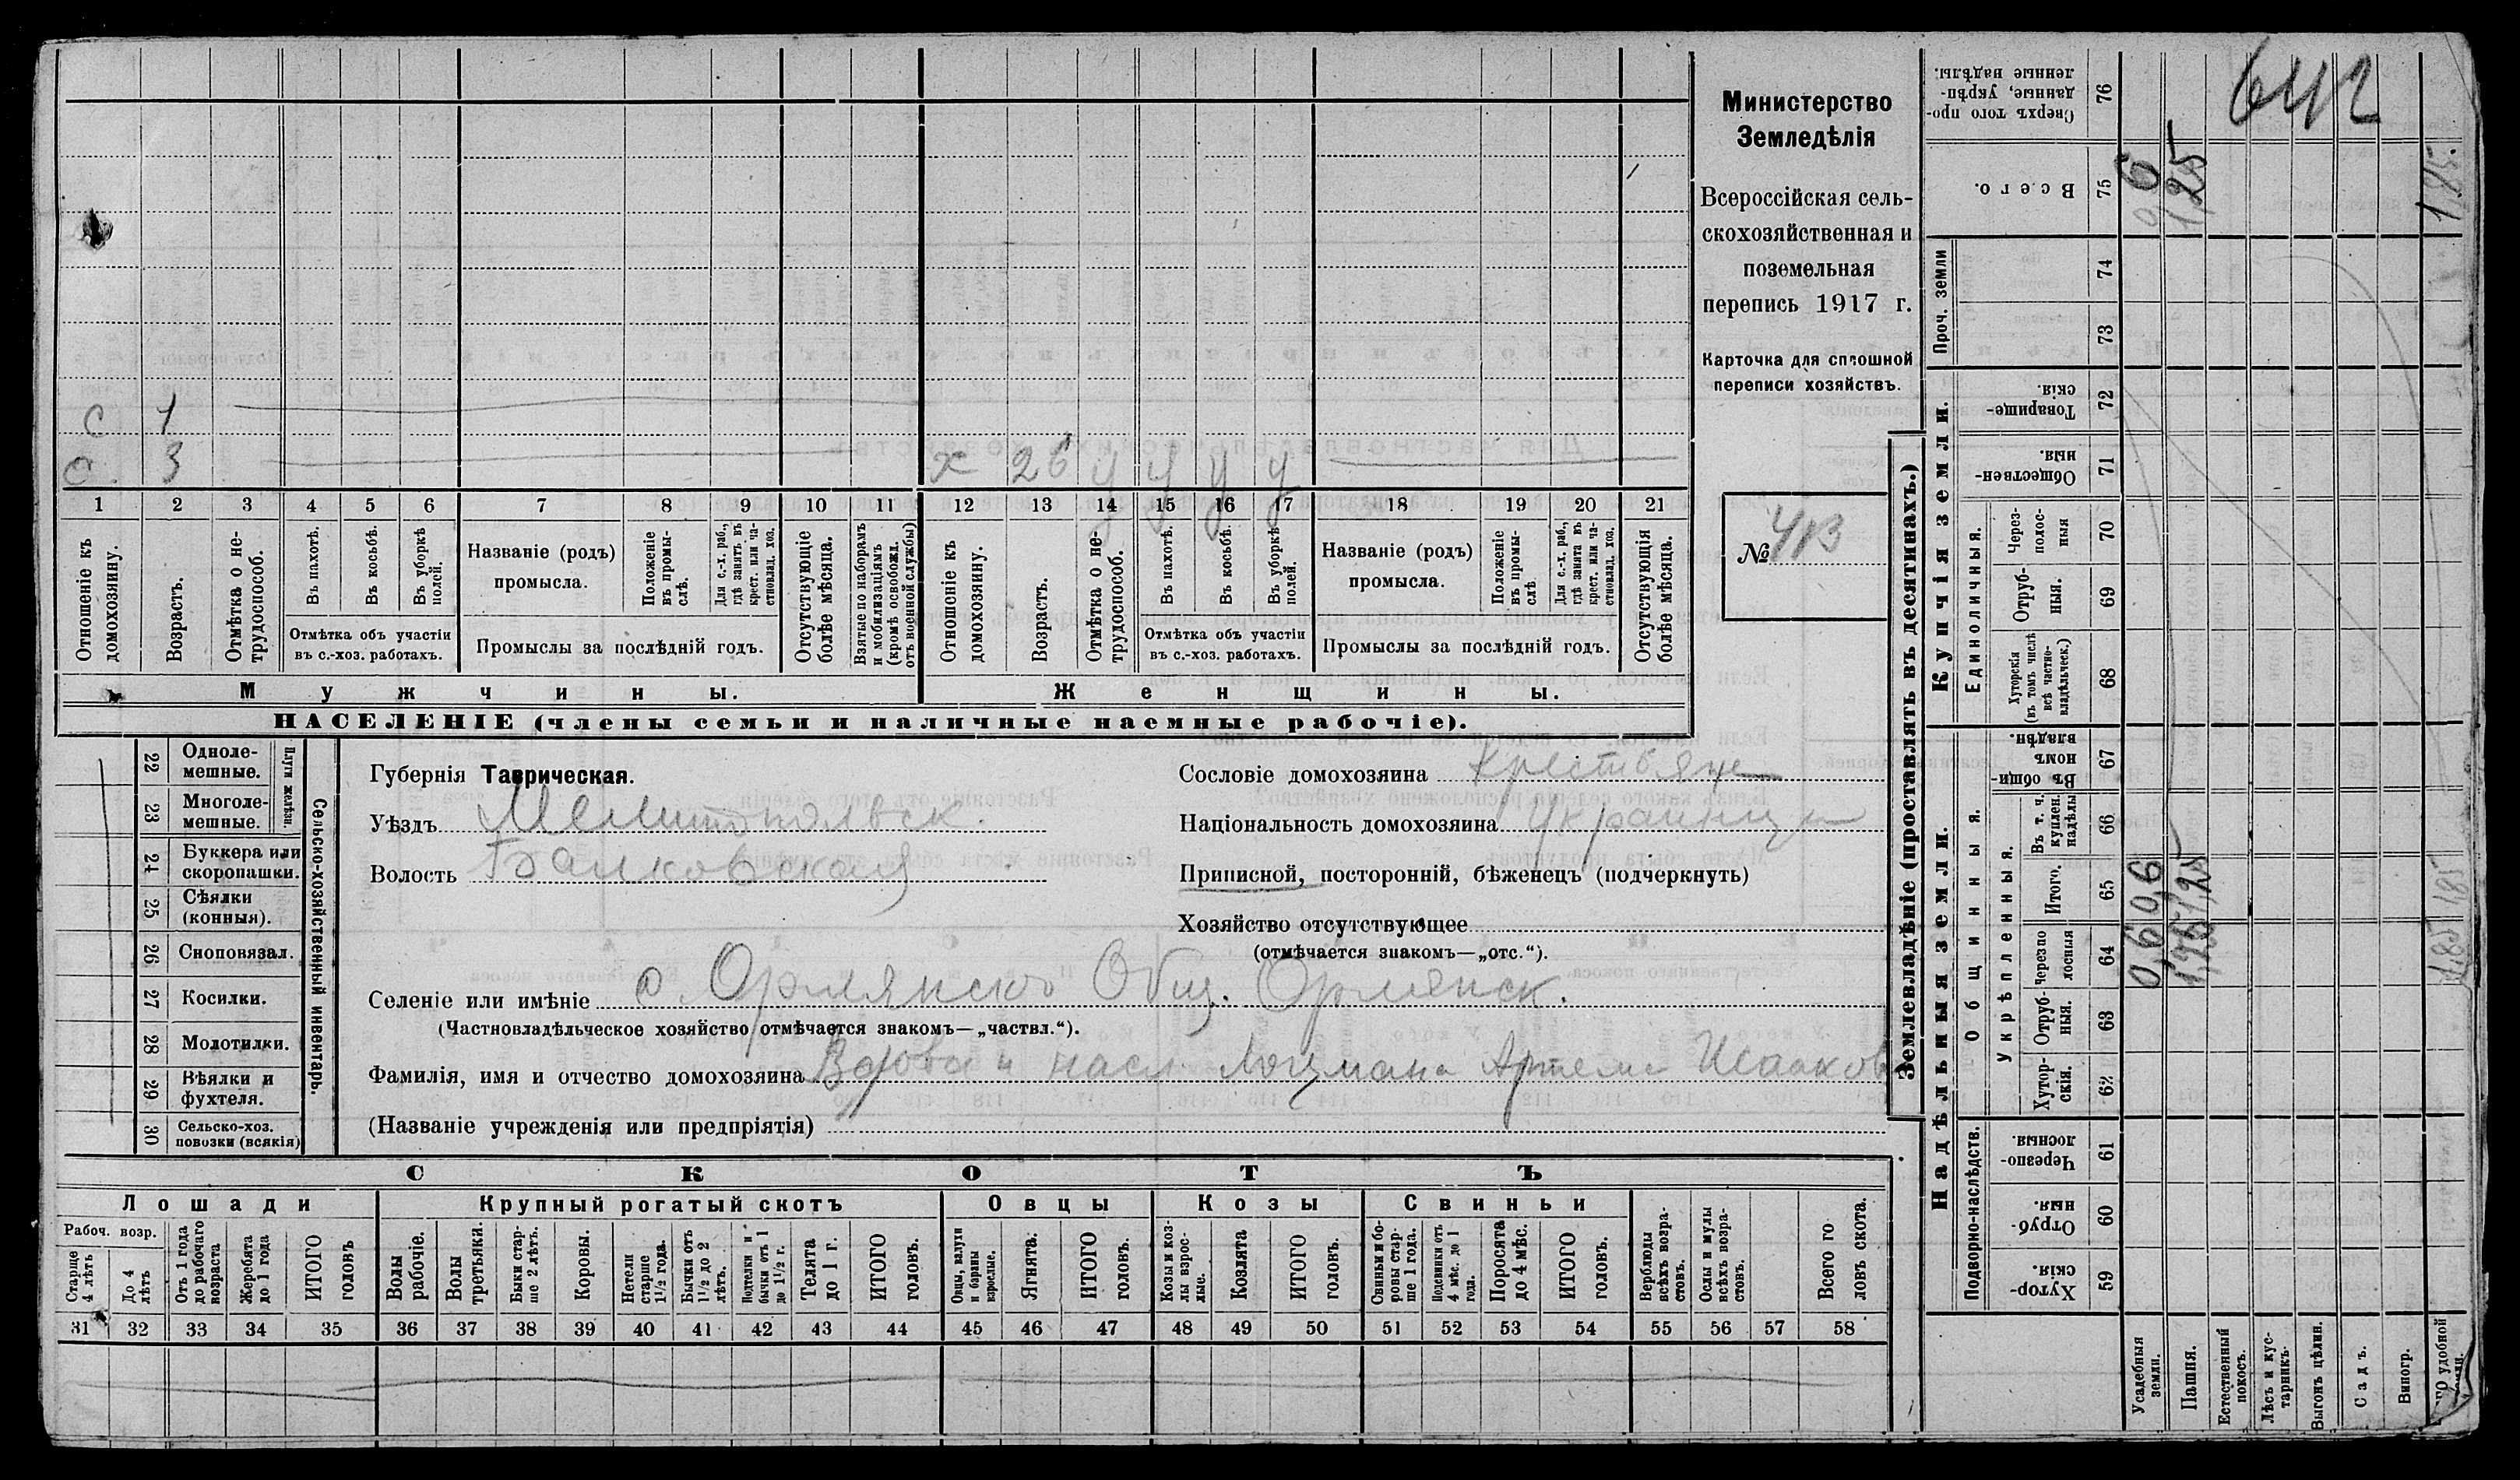 Министерство
Земледѣлія
Всероссійская сель-
скохозяйственная и
поземельная
перепись 1917 г.
Карточка для сплошной
переписи хозяйствъ.
№ 413
642
с 1
с. 3
х 26 у у у у
1 2 3 4 5 6 7 8 9 10 11 12 13 14 15 16 17 18 19 20 21
Отношеніе къ домохозяину.
Возрастъ.
Отмѣтка о не-трудоспособ.
Въ пахотѣ.
Въ косьбѣ.
Въ уборкѣ полей.
Отмѣтка объ участіи
въ с.-хоз. работахъ.
Названіе (родъ)
промысла.
Положеніе въ промы-слѣ.
Для с.-х. раб., гдѣ занятъ въ крест. или ча-стновлад. хоз.
Промыслы за послѣдній годъ.
Отсутствующіе болѣе мѣсяца.
Взятые по наборамъ и мобилизаціямъ (кромѣ освобожд. отъ военной службы)
Отношеніе къ домохозяину.
Возрастъ.
Отмѣтка о не-трудоспособ.
Въ пахотѣ.
Въ косьбѣ.
Въ уборкѣ полей.
Отмѣтка объ участіи
въ с.-хоз. работахъ.
Названіе (родъ)
промысла.
Положеніе въ промы-слѣ.
Для с.-х. раб., гдѣ занята въ крест. или ча-стновлад. хоз.
Промыслы за послѣдній годъ.
Отсутствующія болѣе мѣсяца.
Мужчины.
Женщины.
НАСЕЛЕНІЕ (члены семьи и наличные наемные рабочіе).
Сельско-хозяйственный инвентарь.
Плуги желѣзн.
22 Одноле-мешные.
23 Многоле-мешные.
24 Буккера или скоропашки.
25 Сѣялки (конныя).
26 Сноповязал.
27 Косилки.
28 Молотилки.
29 Вѣялки и фухтеля.
30 Сельско-хоз. повозки (всякія)
Губернія Таврическая.
Уѣздъ Мелитопольск.
Волость Балковская
Сословіе домохозяина Крестьяне
Національность домохозяина Украинцы
Приписной, посторонній, бѣженецъ (подчеркнуть)
Хозяйство отсутствующее
(отмѣчается знакомъ—„отс.“).
Селеніе или имѣніе с. Орлянско Общ. Орлянск.
(Частновладѣльческое хозяйство отмѣчается знакомъ—„частвл.“).
Фамилія, имя и отчество домохозяина Вдова и насл. Лоцмана Артема Исааков
(Названіе учрежденія или предпріятія)
СКОТЪ
Лошади
Крупный рогатый скотъ
Овцы
Козы
Свиньи
Рабоч. возр.
Старше 4 лѣтъ
До 4 лѣтъ
Отъ 1 года до рабочаго возраста
Жеребята до 1 года
ИТОГО головъ
Волы рабочіе.
Волы третьяки.
Быки стар-ше 2 лѣтъ.
Коровы.
Нетели старше 1½ года.
Бычки отъ 1½ до 2 лѣтъ.
Нетелки и бычки отъ 1 до 1½ г.
Телята до 1 г.
ИТОГО головъ.
Овцы, валухи и бараны взрослые.
Ягнята.
ИТОГО головъ.
Козы и коз-лы взрос-лые.
Козлята
ИТОГО головъ.
Свиньи и бо-ровы стар-ше 1 года.
Подсвинки отъ 4 мѣс. до 1 года.
Поросята до 4 мѣс.
ИТОГО головъ.
Верблюды всѣхъ возра-стовъ.
Ослы и мулы всѣхъ возра-стовъ.
Всего го-ловъ скота.
31 32 33 34 35 36 37 38 39 40 41 42 43 44 45 46 47 48 49 50 51 52 53 54 55 56 57 58
Землевладѣніе (проставлять въ десятинахъ.)
Надѣльныя земли.
Купчія земли.
Проч. земли
Подворно-наслѣдств.
Общинныя.
Укрѣпленныя.
Единоличныя.
Сверхъ того про-данные, укрѣп-ленные надѣлы. 76
Всего. 75 0,6 1,25 1,85.
74
73
Товарище-скія. 72
Обществен-ныя. 71
Через-полос-ныя 70
Отруб-ныя. 69
Хуторскія (въ томъ числѣ всѣ частно-владѣльческ.) 68
Въ общи-номъ владѣн. 67
Въ т. ч. куплен. надѣлы 66
Итого. 65 0,6 1,25 1,85
Черезпо лосныя 64 0,6 1,25 1,85
Отруб-ныя. 63
Хутор-скія. 62
Черезпо-лосныя. 61
Отруб-ныя. 60
Хутор-скія. 59
Усадебныя земли.
Пашня.
Естественный покосъ.
Лѣсъ и кус-тарникъ.
Выгонъ цѣлин.
Садъ.
Виногр.
удобной